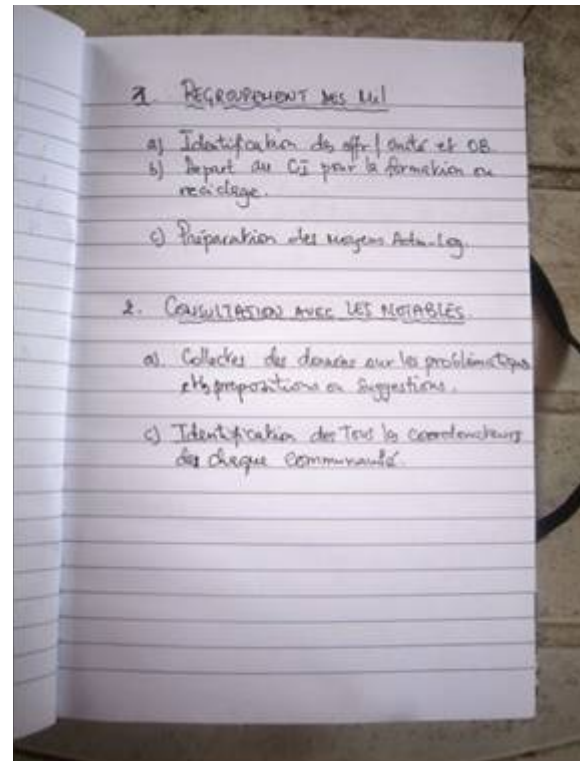 1. REGROUPEMENT DES Mil
a) Identification des offr / unité et OB
b) Depart au CI pour la formation ou
reciclage.
c) Préparation des moyens Adm-Log.
2. CONSULTATION AVEC LES NOTABLES.
a). Collectes des données sur les problématiques
et les propositions ou suggestions.
c) Identification des Tous les coordonateurs
des chaque communauté.